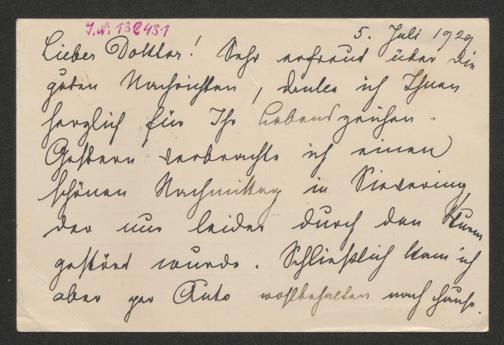 J.N. 132431
5. Juli 1929
Lieber Doktor! Sehr erfreut über die
guten Nachrichten, danke ich Ihnen
herzlich für Ihr Lebenszeichen.
Gestern verbrachte ich einen
schönen Nachmittag in Sievering,
der nur leider durch den Sturm
gestört wurde. Schließlich kam ich
aber per Auto wohlbehalten nach Hause.